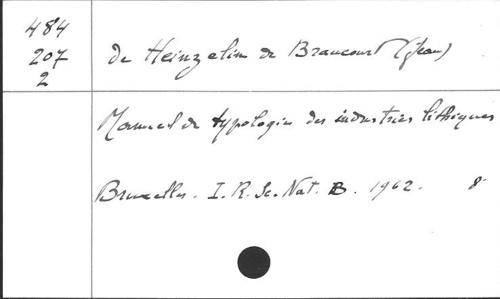 484
207
2
de Heinzelin de Braucourt (Jean)
Manuel de typologie des industries lithiques
Bruxelles. I. R. Sc. Nat. B. 1962. 8°